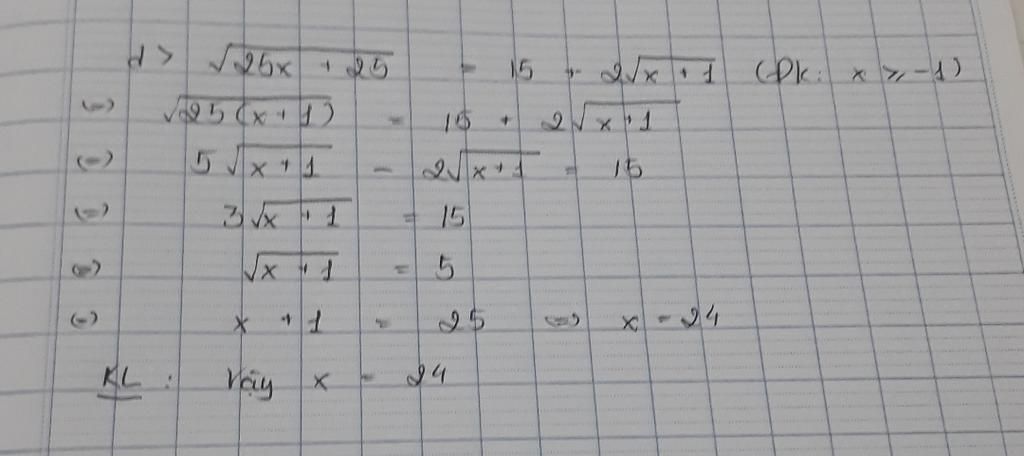 d> √(25x + 25) = 15 + 2√(x + 1) (ĐK: x ≥ -1)
<=> √(25(x + 1)) = 15 + 2√(x + 1)
<=> 5√(x + 1) - 2√(x + 1) = 15
<=> 3√(x + 1) = 15
<=> √(x + 1) = 5
<=> x + 1 = 25 <=> x = 24
KL: Vậy x = 24